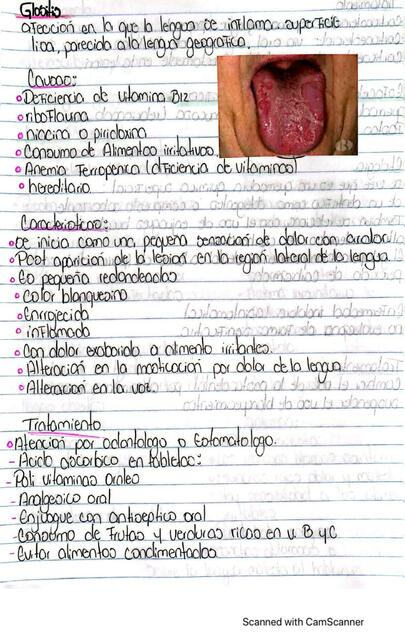 Glositis
afección en la que la lengua se inflama superficie
lisa, parecido a la lengua geografica.
Causas:
Deficiencia de vitamina B12
riboflavina
niacina o piridoxina
Consumo de Alimentos irritativos.
Anemia Ferropenica (deficiencia de vitaminas)
hereditario
Caracteristicas:
Se inicia como una pequeña sensacion de dolor con ardor
Post aparicion de la lesion en la region lateral de la lengua
Es pequeña redondeadas
Color blanquesino
Enrojecido
inflamado
Con dolor exaborado a alimento irritantes.
Alteración en la masticacion por dolor de la lengua
Alteración en la voz.
Tratamiento
Atención por odontologo o Estomatologo.
- Acido ascorbico en tabletas:
- Poli vitaminas orales
- Analgesico oral
- Enjuague con antiseptico oral
- Consumo de Frutas y verduras ricas en v. B y C
- Evitar alimentos condimentados
Scanned with CamScanner